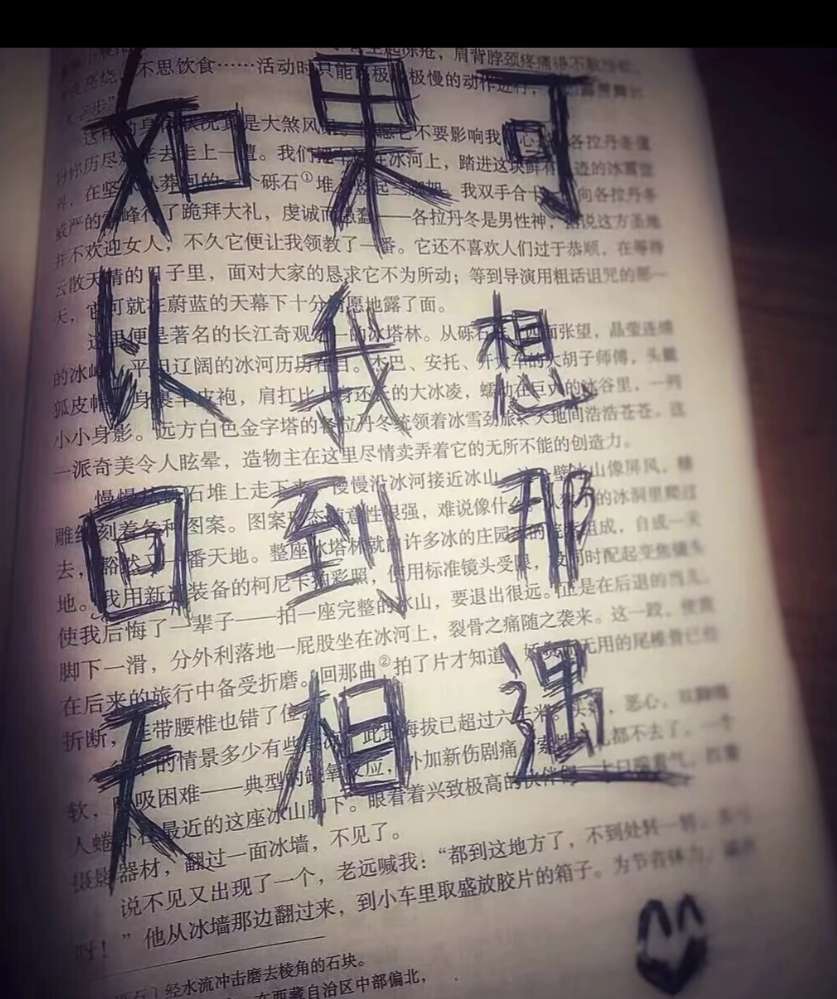 如果可
以我想
回到那
天相遇
不思饮食……活动时只能 极 极慢的动作
这样的身 状况真是大煞风 不要影响我 各拉丹冬
历尽 去走上一遭。我们 在冰河上，踏进这块鲜有 边的冰雪世
界，在坚 莽 的一个砾石①堆 竖起三 我双手合十 向各拉丹冬
威严的 峰行了跪拜大礼，虔诚而 ——各拉丹冬是男性神，据说这方圣地
并不欢迎女人，不久它便让我领教了一番。它还不喜欢人们过于恭顺，在等待
云散天晴的日子里，面对大家的恳求它不为所动；等到导演用粗话诅咒的那一
天，它可就在蔚蓝的天幕下十分 愿地露了面。
这里便是著名的长江奇观 一的冰塔林。从砾石 四面张望，晶莹连绵
的冰峰、平坦辽阔的冰河历历在目。杰巴、安托、开 车的大胡子师傅，头戴
狐皮帽 身裹羊皮袍，肩扛比 身还长的大冰凌，蠕动在巨大的冰谷里，一列
小小身影。远方白色金字塔的各拉丹冬统领着冰雪劲旅，天地间浩浩苍苍。这
一派奇美令人眩晕，造物主在这里尽情卖弄着它的无所不能的创造力。
慢慢从 石堆上走下来 慢慢沿冰河接近冰山。这 壁冰山像屏风，精
雕 刻着各种图案。图案形态随意性很强，难说像什么 的冰洞里爬过
去，豁然又 番天地。整座冰塔林就由许多冰的庄园 的院 组成，自成一天
地。我用新 装备的柯尼卡拍彩照，使用标准镜头受限，没 同时配起变焦镜头
使我后悔了一辈子——拍一座完整的冰山，要退出很远。正是在后退的当儿，
脚下一滑，分外利落地一屁股坐在冰河上，裂骨之痛随之袭来。这一跤，使我
在后来的旅行中备受折磨。回那曲②拍了片才知道， 无用的尾椎骨已经
折断，连带腰椎也错了位。
的情景多少有些 此地海拔已超过六千米。头 恶心，双脚绵
软，呼吸困难——典型的缺氧反应，外加新伤剧痛， 都不去了。一个
人蜷卧在最近的这座冰山脚下。眼看着兴致极高的伙伴们
摄影器材，翻过一面冰墙，不见了。
说不见又出现了一个，老远喊我：“都到这地方了，不到处转一转，多
呀！”他从冰墙那边翻过来，到小车里取盛放胶片的箱子。为节省体力，
经水流冲击磨去棱角的石块。
在西藏自治区中部偏北，